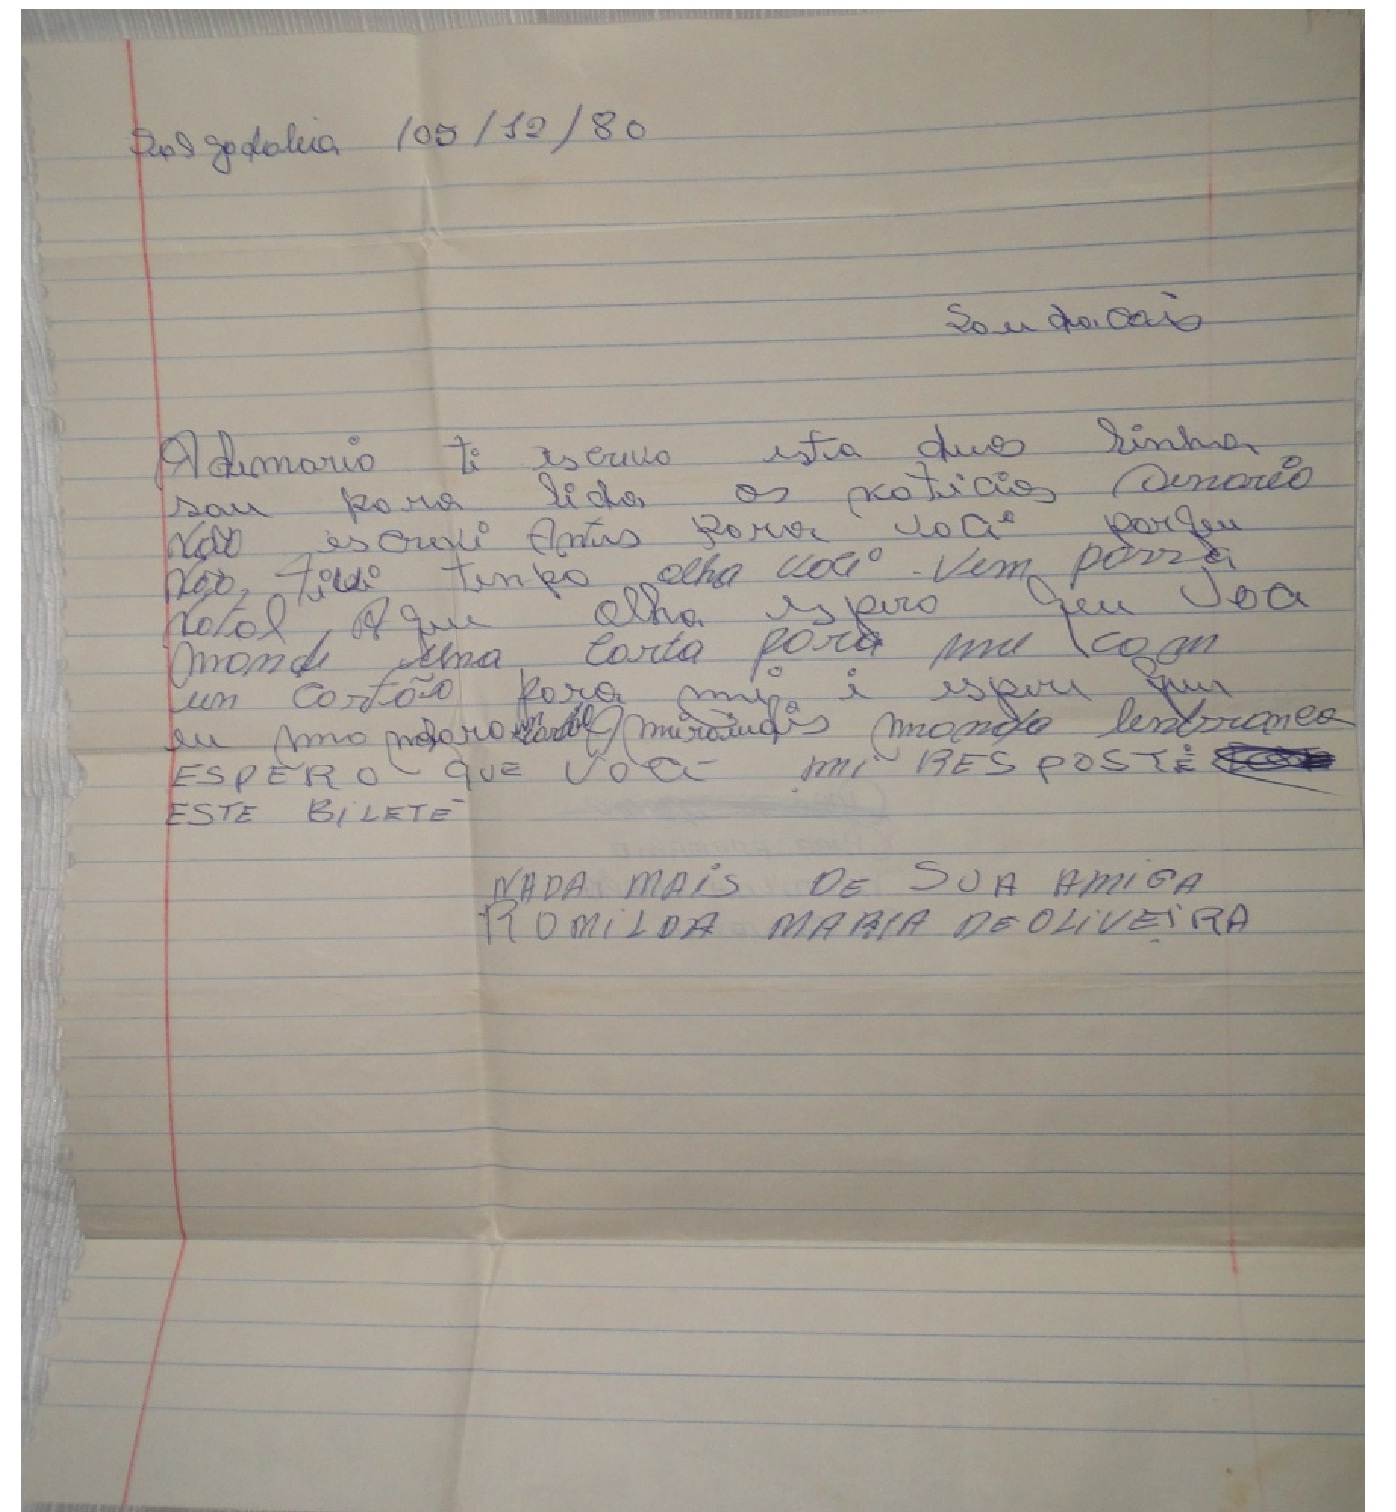 /05/12/80
Saudacois
Ademario ti escrevo esta duas linha
sou para lida as noticias
Não escrevi Antes para você porqeu
não tive tempo olha você vem parra
Natal Aqui olha espero qeu voca
mande uma Carta para mi com
un cartão para mi i esperu qeu
eu mando lenbranca
ESPERO QUE VOCÊ mi RESPOSTE
ESTE BILETE
NADA MAIS DE SUA AMIGA
ROMILDA MARIA DE OLIVEIRA